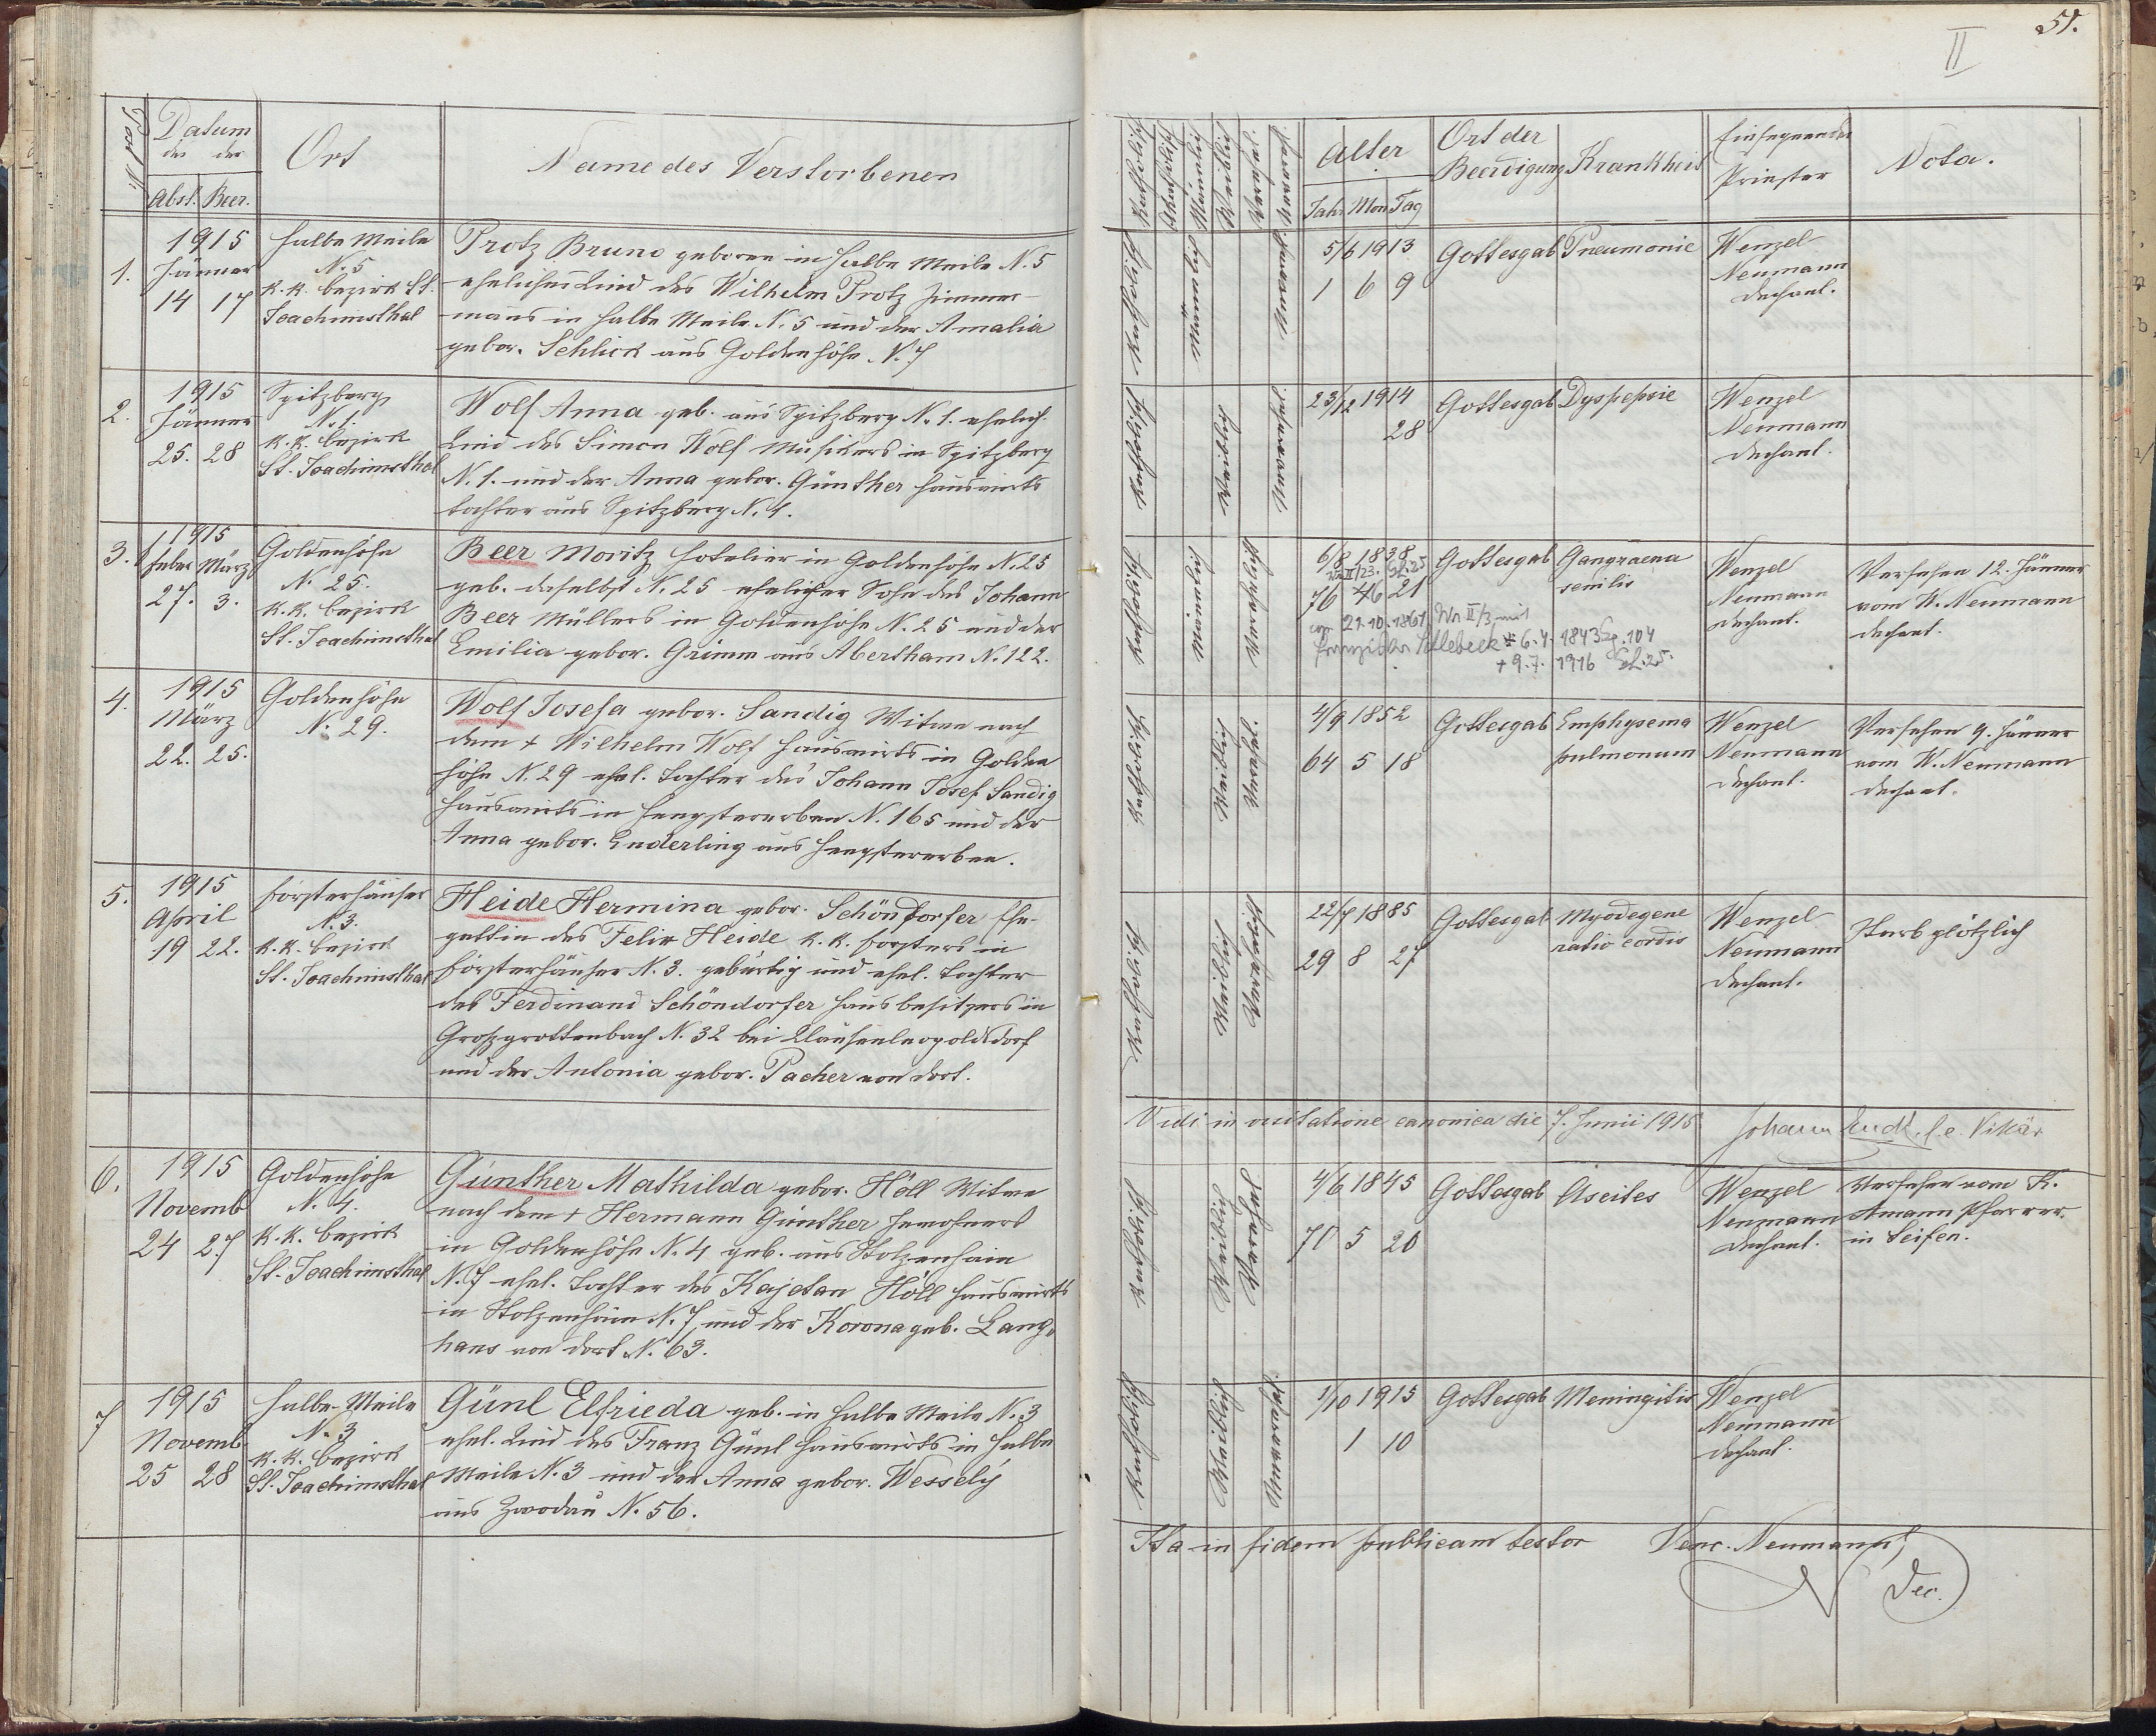 51.
II
Post N.
Datum
des der
Abst. Beer.
Ort
Name des Verstorbenen
Katholisch
Männlich
Weiblich
Verehel.
Alter
Jahr Mon Tag
Ort der
Beerdigung
Krankheit
Einsegnender
Priester
Nota.
1.
1915
Jänner
14 17
Halbe Meile
N. 5
k. k. Bezirk St.
Joachimsthal
Protz Bruno geboren in Halbe Meile N. 5
eheliches Kind des Wilhelm Protz Zimmer-
manns in Halbe Meile N. 5 und der Amalia
gebor. Schlick aus Goldenhöhe N. 7
Katholisch
Männlich
5/6 1913
1 6 9
Gottesgab
Pneumonie
Wenzel
Neumann
Dechant.
2.
1915
Jänner
25. 28
Spitzberg
N. 1.
k. k. Bezirk
St. Joachimsthal
Wolf Anna geb. aus Spitzberg N. 1. ehelich.
Kind des Simon Wolf Musikers in Spitzberg
N. 1. und der Anna gebor. Günther Hauswirts
tochter aus Spitzberg N. 1.
Katholisch
Weiblich
23/12 1914
28
Gottesgab
Dyspepsie
Wenzel
Neumann
Dechant.
3.
1915
Feber März
27. 3.
Goldenhöhe
N. 25.
k. k. Bezirk
St. Joachimsthal
Beer Moritz Hotelier in Goldenhöhe N. 25
geb. daselbst N. 25 ehelicher Sohn des Johann
Beer Müllers in Goldenhöhe N. 25 und der
Emilia gebor. Grimm aus Abertham N. 122.
Katholisch
Männlich
Verehelicht
6/8 1838
II/23. Gh. 25
76 6 21
21.10.1861 Wn II/3 mit
* 6.4. 1843 Sg. 104
+ 9.7. 1916 Gh. 25.
Gottesgab
Gangraena
senilis
Wenzel
Neumann
Dechant.
Versehen 12. Jänner
vom W. Neumann
Dechant.
4.
1915
März
22. 25.
Goldenhöhe
N. 29.
Wolf Josefa gebor. Sandig Witwe nach
dem + Wilhelm Wolf Hauswirts in Golden
höhe N. 29 ehel. Tochter des Johann Josef Sandig
Hauswirts in Hengstererben N. 165 und der
Anna gebor. Enderling aus Hengstererben.
Katholisch
Weiblich
Verehel.
4/9 1852
64 5 18
Gottesgab
Emphysema
pulmonum
Wenzel
Neumann
Dechant.
Versehen 9. Jänner
vom W. Neumann
Dechant.
5.
1915
April
19 22.
Försterhäuser
N. 3.
k. k. Bezirk
St. Joachimsthal
Heide Hermina gebor. Schöndorfer Ehe-
gattin des Felix Heide k. k. Försters in
Försterhäuser N. 3. gebürtig und ehel. Tochter
des Ferdinand Schöndorfer Hausbesitzers in
Großgrottenbach N. 32 bei Klausenleopoldsdorf
und der Antonia gebor. Pacher von dort.
Katholisch
Weiblich
Verehelicht
22/7 1885
29 8 27
Gottesgab
Myodegene
ratio cordis
Wenzel
Neumann
Dechant.
Starb plötzlich
Vidi in visitatione canonica die 7. Junii 1915
Johann f.e. Vikär
6.
1915
Novemb
24 27
Goldenhöhe
N. 4.
k. k. Bezirk
St. Joachimsthal
Günther Mathilda gebor. Höll Witwe
nach dem + Hermann Günther Inwohners
in Goldenhöhe N. 4 geb. aus Stolzenhain
N. 7 ehel. Tochter des Kajetan Höll Hauswirts
in Stolzenhain N. 7 und der Korona geb. Lang-
hans von dort N. 63.
Katholisch
Weiblich
Verehelicht
4/6 1845
70 5 20
Gottesgab
Ascites
Wenzel
Neumann
Dechant.
Versehen vom K.
Amann Pfarrer
in Seifen.
7
1915
Novemb
25 28
Halbe-Meile
N. 3
k. k. Bezirk
St. Joachimsthal
Günl Elfrieda geb. in Halbe Meile N. 3
ehel. Kind des Franz Günl Hauswirts in Halbe
Meile N. 3 und der Anna gebor. Wesselý
aus Zwodau N. 56.
Katholisch
Weiblich
1/10 1915
1 10
Gottesgab
Meningitis
Wenzel
Neumann
Dechant.
Ita in fidem publicam testor Venc. Neumann,
Dec.